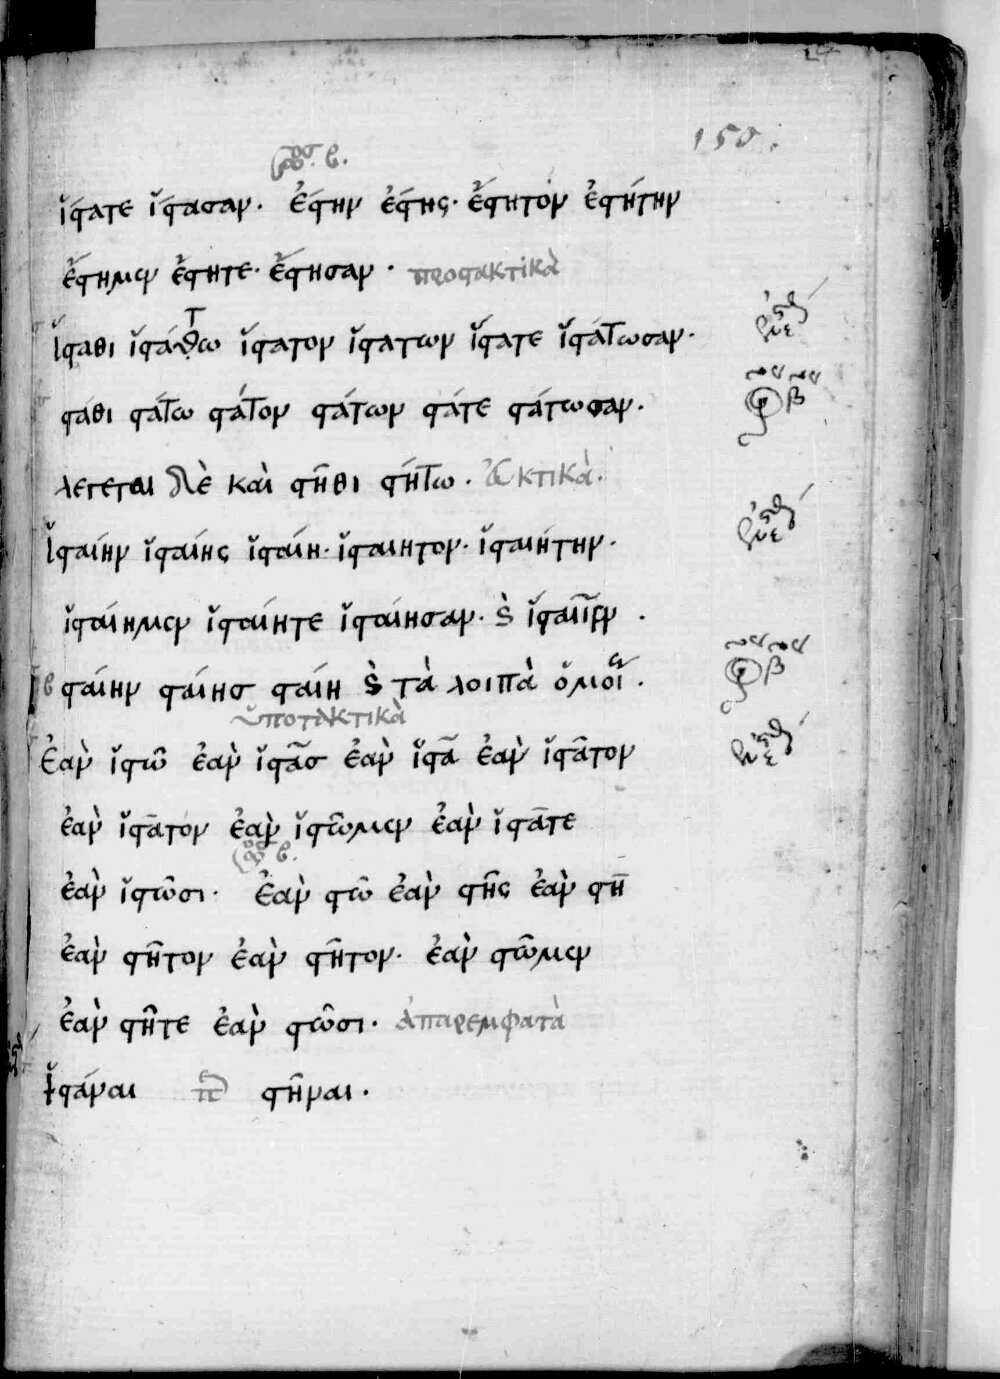 150.
ἀόρ. β.
ἵστατε ἵστασαν. ἔστην ἔστης. ἔστητον ἐστήτην
ἔστημεν ἔστητε. ἔστησαν. προστακτικὰ
ἵσταθι ἱστάτω ἵστατον ἱστάτων ἵστατε ἱστάτωσαν.
στάθι στάτω στάτον στάτων στάτε στάτωσαν.
λέγεται δὲ καὶ στῆθι στήτω. εὐκτικὰ.
ἱσταίην ἱσταίης ἱσταίη. ἱσταίητον. ἱσταιήτην.
ἱσταίημεν ἱσταίητε ἱσταίησαν. καὶ ἱσταῖεν.
β σταίην σταίης σταίη καὶ τὰ λοιπὰ ὅμοι.
ὑποτακτικὰ
ἐὰν ἱστῶ ἐὰν ἱστᾶς ἐὰν ἱστᾶ ἐὰν ἱστᾶτον
ἐὰν ἱστᾶτον ἐὰν ἱστῶμεν ἐὰν ἱστᾶτε
ἀόρ. β.
ἐὰν ἱστῶσι. ἐὰν στῶ ἐὰν στῆς ἐὰν στῆ
ἐὰν στῆτον ἐὰν στῆτον. ἐὰν στῶμεν
ἐὰν στῆτε ἐὰν στῶσι. ἀπαρέμφατα
ἱστάναι στῆναι.